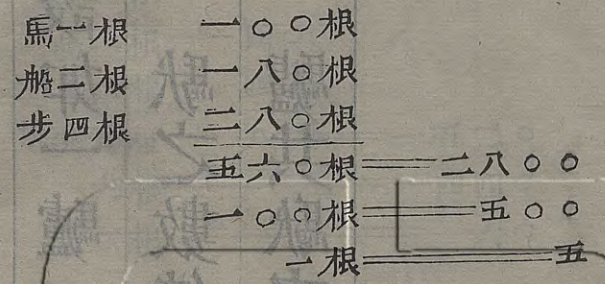 馬一根 一〇〇根
船二根 一八〇根
步四根 二八〇根
五六〇根══二八〇〇
一〇〇根══五〇〇
一根══五